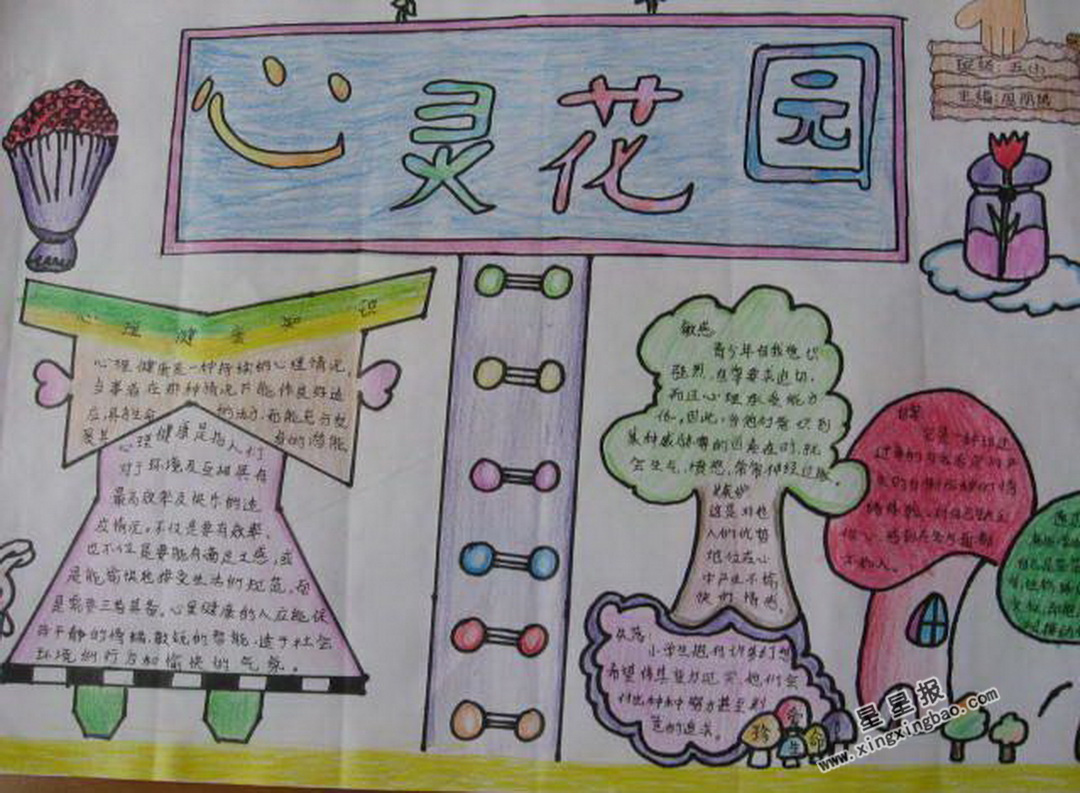 心灵花园
班级:五(1)
主编:
心理健康知识
心理健康是一种持续的心理情况,
当事者在那种情况下能作良好适
应,具有生命的活力,而能充分发
展其身的潜能,
心理健康是指人们
对于环境及互相具有
最高效率及快乐的适
应情况。不仅是要有效率,
也不仅是要能有满足之感,或
是能愉快地接受生活的规范,而
是需要三者具备。心里健康的人应能保
持平静的情绪,敏锐的智能,适于社会
环境的行为和愉快的气氛。
敏感:
青少年自我意识
强烈,自尊要求迫切,
而且心理承受能力
低,因此,当他们意识到
某种威胁自尊的因素存在时,就
会生气,愤怒,常常神经过敏。
嫉妒
这是对他
人的优势
地位在心
中产生不愉
快的情感。
失落:
小学生抱有许多幻想
希望将其变为现实,他们会
付出种种努力甚至刻
意的追求。
自卑
它是一种
信心,
不如人。
珍爱生命
星星报
www.xingxingbao.com